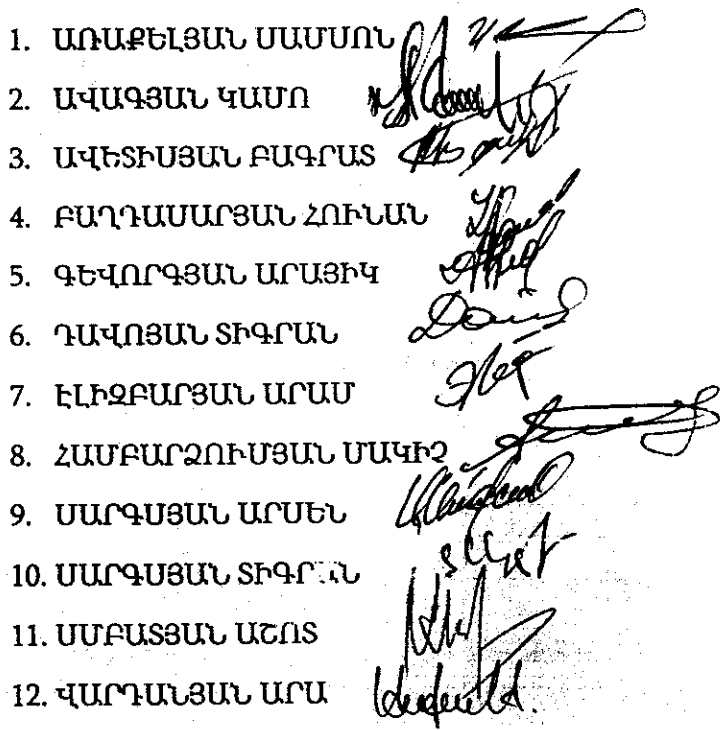 1. ԱՌԱՔԵԼՅԱՆ ՍԱՄՍՈՆ
2. ԱՎԱԳՅԱՆ ԿԱՄՈ
3. ԱՎԵՏԻՍՅԱՆ ԲԱԳՐԱՏ
4. ԲԱՂԴԱՍԱՐՅԱՆ ՀՈՒՆԱՆ
5. ԳԵՎՈՐԳՅԱՆ ԱՐԱՅԻԿ
6. ԴԱՎՈՅԱՆ ՏԻԳՐԱՆ
7. ԷԼԻԶԲԱՐՅԱՆ ԱՐԱՄ
8. ՀԱՄԲԱՐՁՈՒՄՅԱՆ ՄԱԿԻՉ
9. ՍԱՐԳՍՅԱՆ ԱՐՍԵՆ
10. ՍԱՐԳՍՅԱՆ ՏԻԳՐԱՆ
11. ՍՄԲԱՏՅԱՆ ԱՇՈՏ
12. ՎԱՐԴԱՆՅԱՆ ԱՐԱ